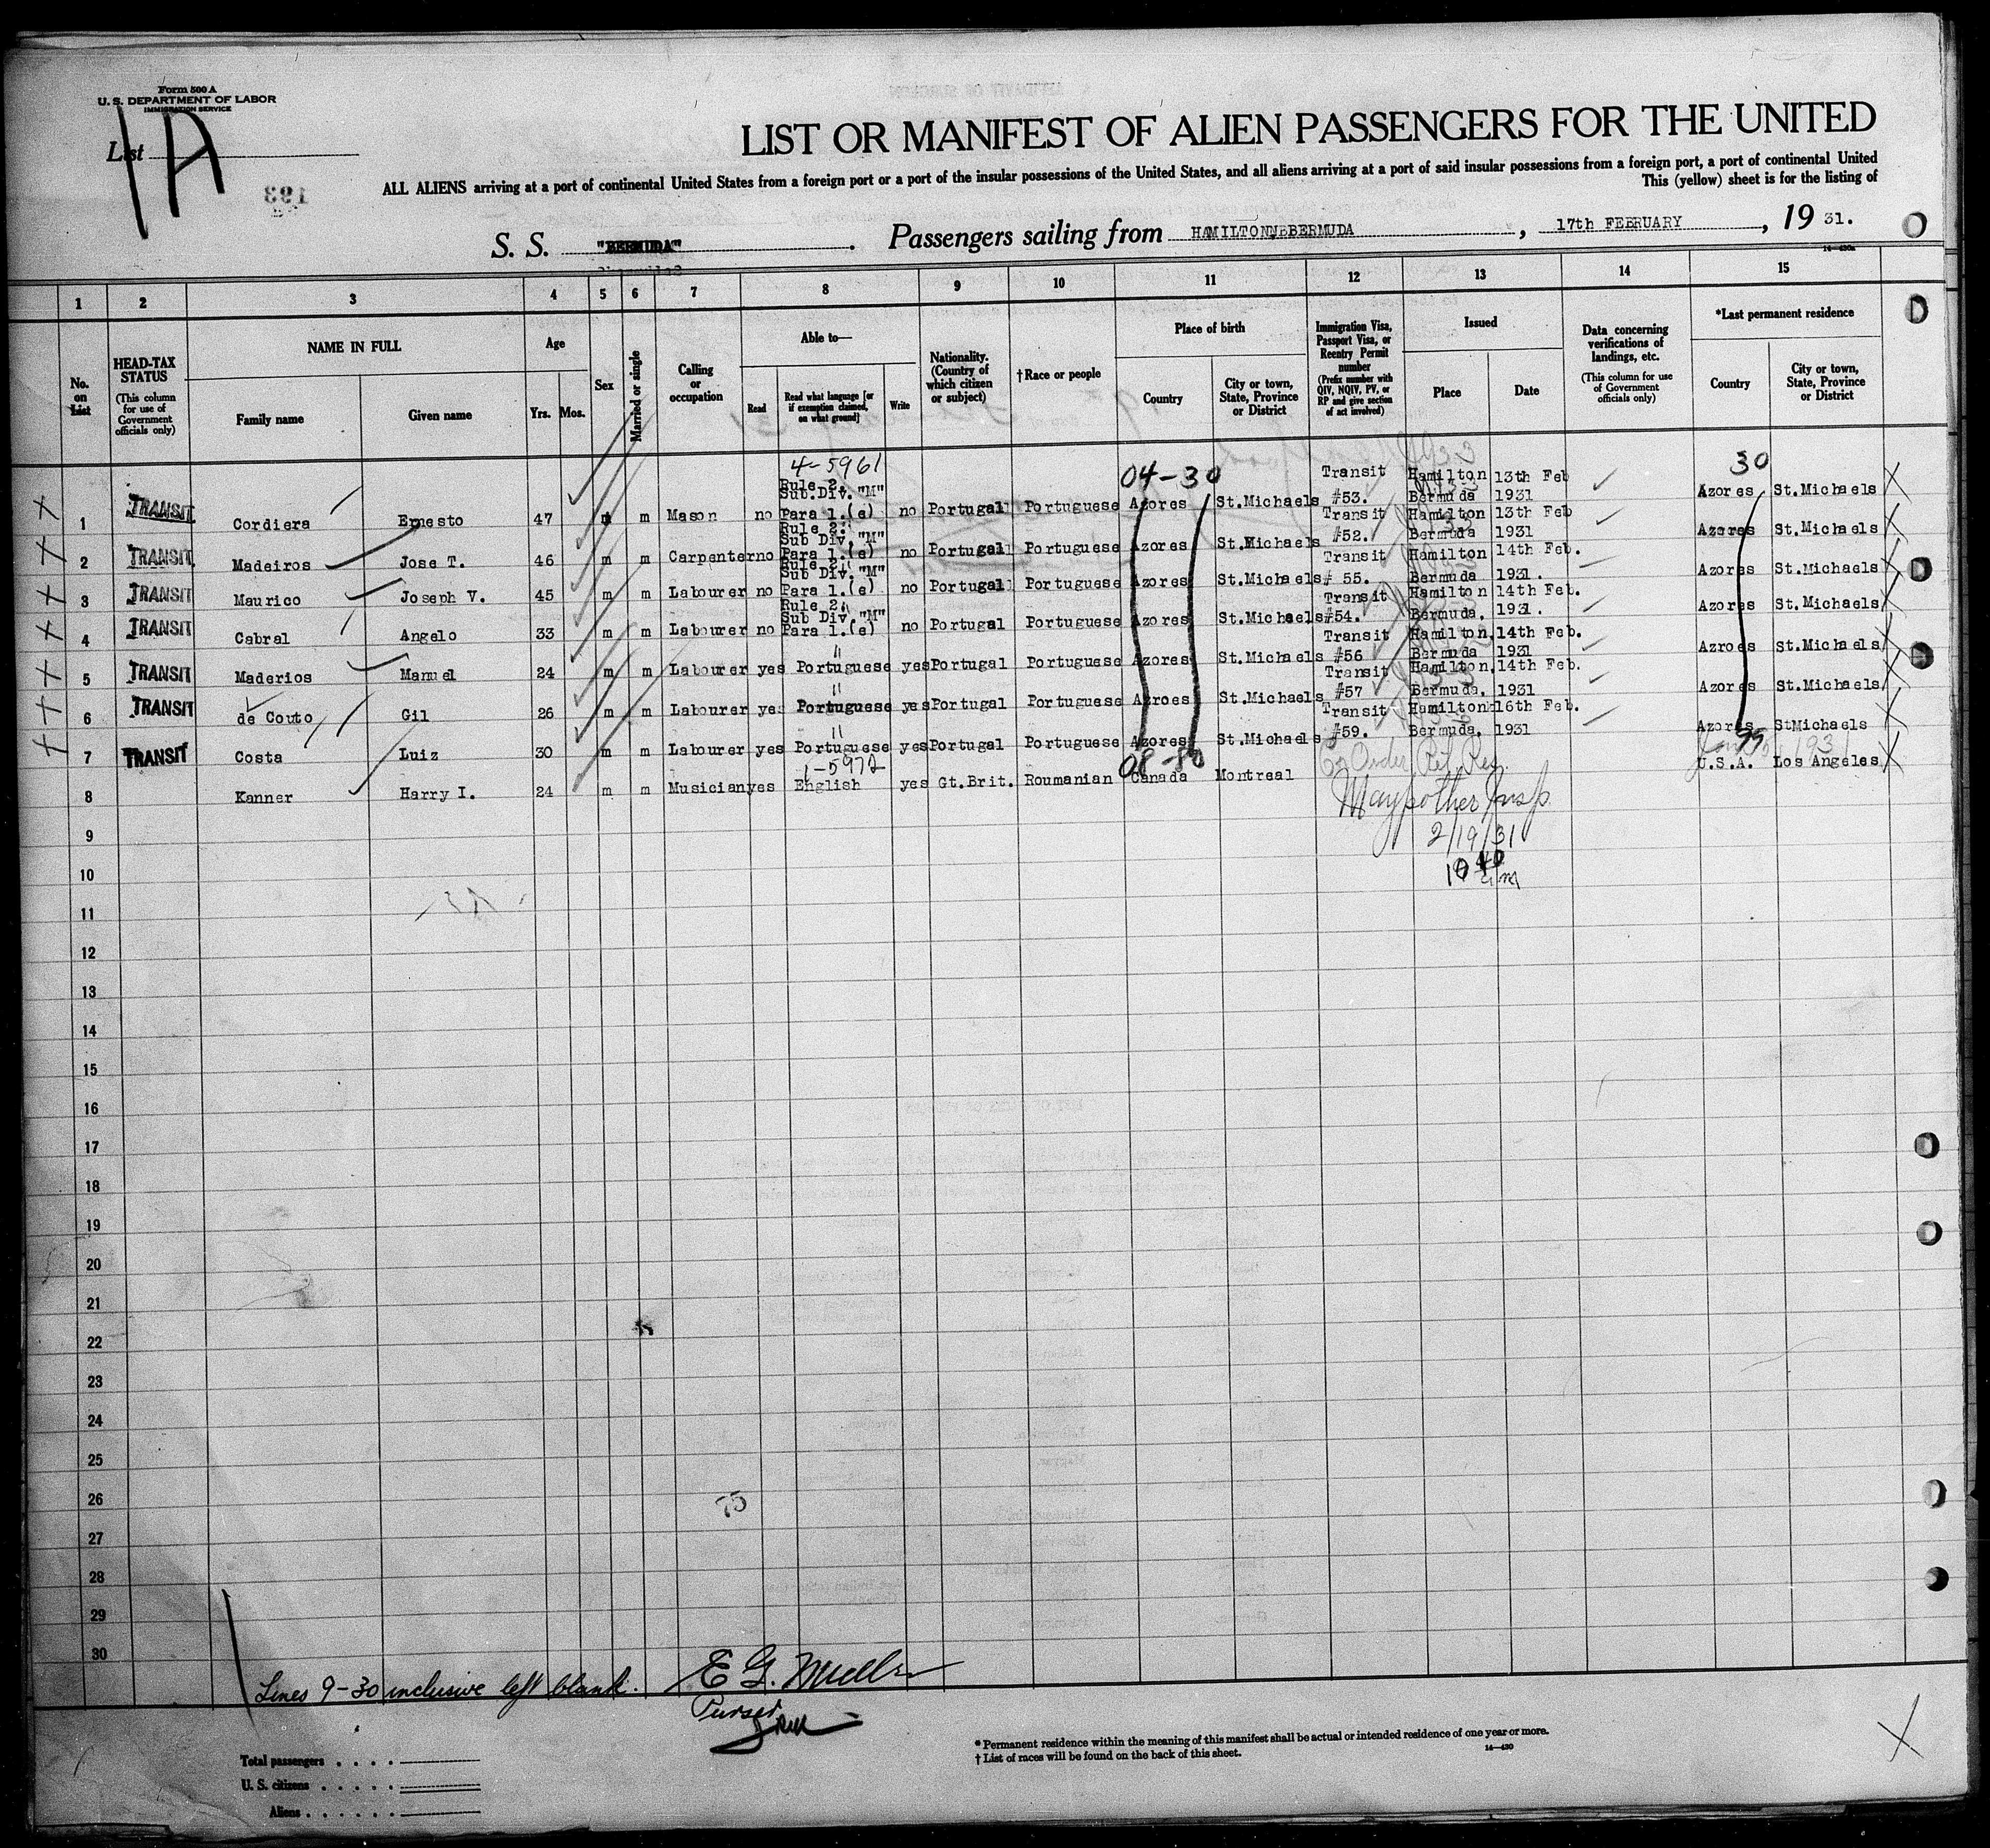 Form 500 A
U. S. DEPARTMENT OF LABOR
IMMIGRATION SERVICE
List 1A
193
LIST OR MANIFEST OF ALIEN PASSENGERS FOR THE UNITED
ALL ALIENS arriving at a port of continental United States from a foreign port or a port of the insular possessions of the United States, and all aliens arriving at a port of said insular possessions from a foreign port, a port of continental United
This (yellow) sheet is for the listing of
S. S. "BERMUDA". Passengers sailing from HAMILTON, BERMUDA, 17th FEBRUARY, 19 31.
14—430a
1 2 3 4 5 6 7 8 9 10 11 12 13 14 15
No. on List
HEAD-TAX STATUS
(This column for use of Government officials only)
NAME IN FULL
Family name
Given name
Age
Yrs. Mos.
Sex
Married or single
Calling or occupation
Able to—
Read
Read what language [or if exemption claimed, on what ground]
Write
Nationality. (Country of which citizen or subject)
†Race or people
Place of birth
Country
City or town, State, Province or District
Immigration Visa, Passport Visa, or Reentry Permit number
(Prefix number with QIV, NQIV, PV, or RP and give section of act involved)
Issued
Place
Date
Data concerning verifications of landings, etc.
(This column for use of Government officials only)
*Last permanent residence
Country
City or town, State, Province or District
4-5961
04-30
30
1 TRANSIT Cordiera Ernesto 47 m m Mason no Rule 2. Sub.Div."M" Para 1.(e) no Portugal Portuguese Azores St.Michaels Transit #53. Hamilton Bermuda 13th Feb 1931 Azores St.Michaels
2 TRANSIT Madeiros Jose T. 46 m m Carpenter no Rule 2. Sub Div."M" Para 1.(e) no Portugal Portuguese Azores St.Michaels Transit #52. Hamilton Bermuda 13th Feb 1931 Azores St.Michaels
3 TRANSIT Maurico Joseph V. 45 m m Labourer no Rule 2. Sub Div."M" Para 1.(e) no Portugal Portuguese Azores St.Michaels Transit # 55. Hamilton Bermuda 14th Feb. 1931. Azores St.Michaels
4 TRANSIT Cabral Angelo 33 m m Labourer no Rule 2. Sub Div."M" Para 1.(e) no Portugal Portuguese Azores St.Michaels Transit #54. Hamilton Bermuda. 14th Feb. 1931. Azores St.Michaels
5 TRANSIT Maderios Manuel 24 m m Labourer yes Portuguese yes Portugal Portuguese Azores St.Michaels Transit #56 Hamilton, Bermuda 14th Feb. 1931 Azroes St.Michaels
6 TRANSIT de Couto Gil 26 m m Labourer yes " Portuguese yes Portugal Portuguese Azroes St.Michaels Transit #57 Hamilton, Bermuda. 14th Feb. 1931 Azores St.Michaels
7 TRANSIT Costa Luiz 30 m m Labourer yes " Portuguese yes Portugal Portuguese Azores St.Michaels Transit #59. Hamilton Bermuda. 16th Feb. 1931 Azores StMichaels
1-5972
08-80
99
8 Kanner Harry I. 24 m m Musician yes English yes Gt.Brit. Roumanian Canada Montreal U.S.A. Los Angeles
Ex Order Ret Res.
Maypother Insp
2/19/31
10 40 am
9
10
11
12
13
14
15
16
17
18
19
20
21
22
23
24
25
26
75
27
28
29
30
Lines 9-30 inclusive left blank. E G. Muller
Purser
Total passengers
U. S. citizens
Aliens
* Permanent residence within the meaning of this manifest shall be actual or intended residence of one year or more.
† List of races will be found on the back of this sheet.
14—430